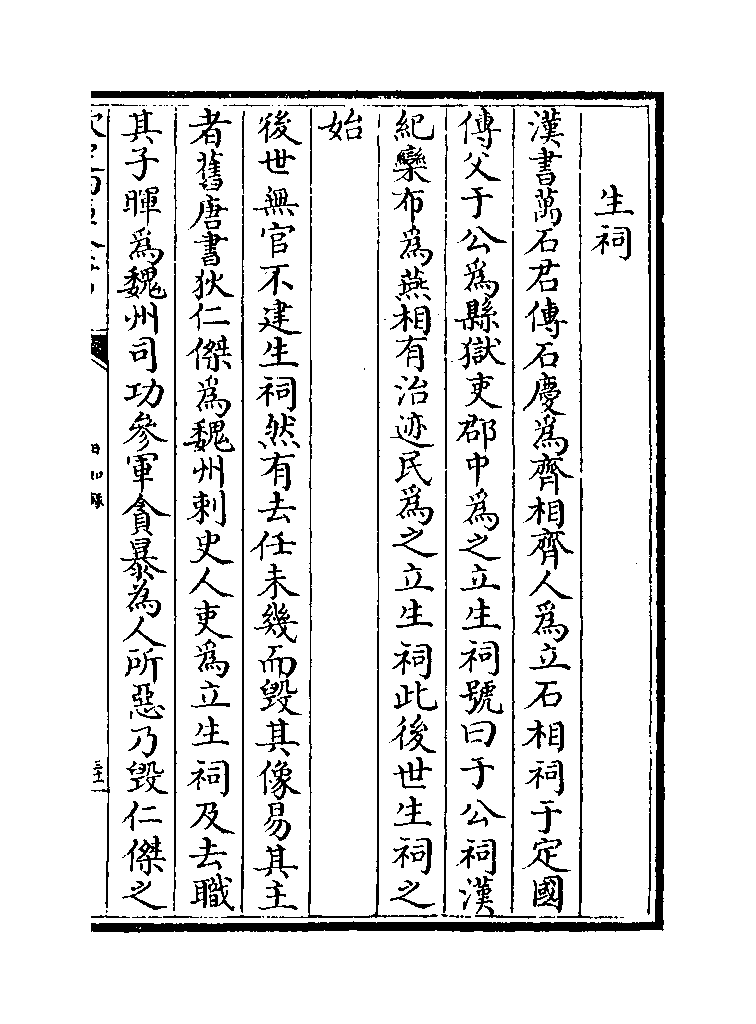 生祠
漢書萬石君傳石慶為齊相齊人為立石相祠于定國
傳父于公為縣獄吏郡中為之立生祠號曰于公祠漢
紀欒布為燕相有治迹民為之立生祠此後世生祠之
始
後世無官不建生祠然有去任未幾而毀其像易其主
者舊唐書狄仁傑為魏州刺史人吏為立生祠及去職
其子暉為魏州司功參軍貪暴為人所惡乃毀仁傑之
日知錄